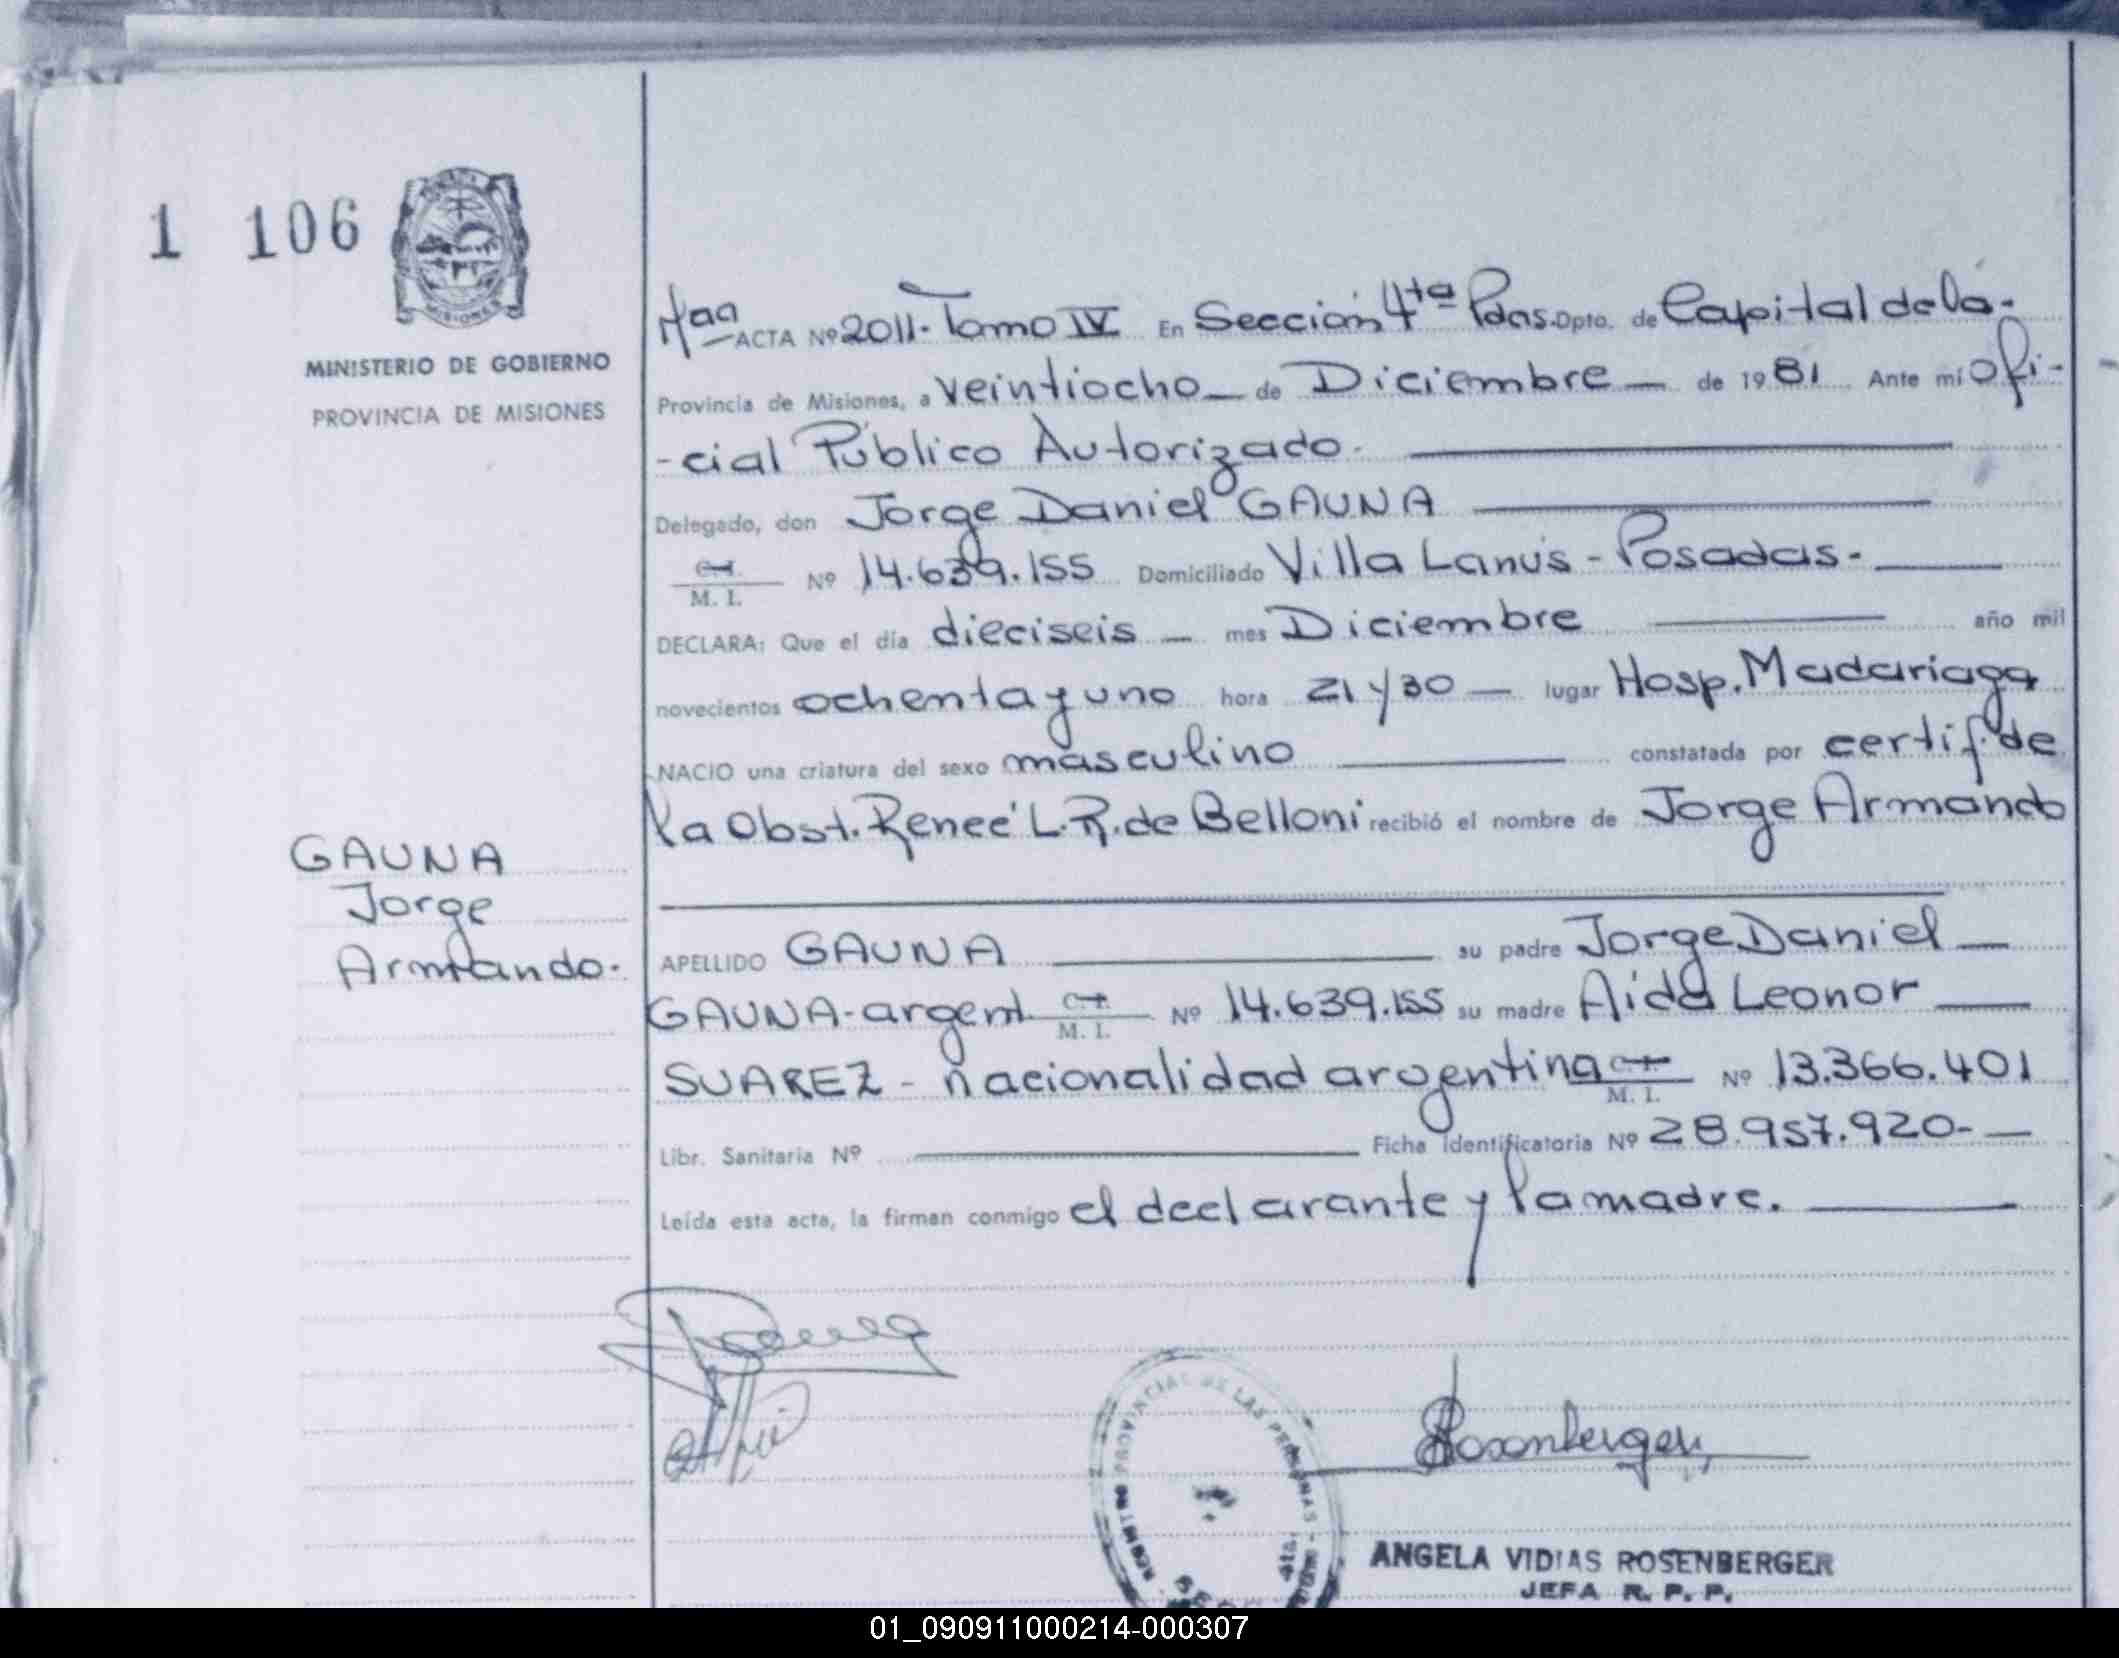 1 106
MISIONES
MINISTERIO DE GOBIERNO
PROVINCIA DE MISIONES
ACTA Nº 2011. Tomo IV En Sección 4ta Pdas. Dpto. de Capital de la-
Provincia de Misiones, a veintiocho de Diciembre de 1981 Ante mí Ofi-
-cial Público Autorizado.
Delegado, don Jorge Daniel GAUNA
M. I. Nº 14.639.155 Domiciliado Villa Lanús - Posadas-
DECLARA: Que el día dieciseis mes Diciembre año mil
novecientos ochenta y uno hora 21 y 30 lugar Hosp. Madariaga
NACIO una criatura del sexo masculino constatada por certif. de
la Obst. Reneé L. R. de Belloni recibió el nombre de Jorge Armando
GAUNA
Jorge
Armando.
APELLIDO GAUNA su padre Jorge Daniel
GAUNA-argent. C.I. M. I. Nº 14.639.155 su madre Aida Leonor
SUAREZ - nacionalidad argentina C.I. M. I. Nº 13.366.401
Libr. Sanitaria Nº Ficha Identificatoria Nº 28.957.920-
Leída esta acta, la firman conmigo el declarante y la madre.
PROVINCIAL DE LAS PERSONAS
Rosenberger
ANGELA VIDIAS ROSENBERGER
JEFA R. P. P.
01_090911000214-000307